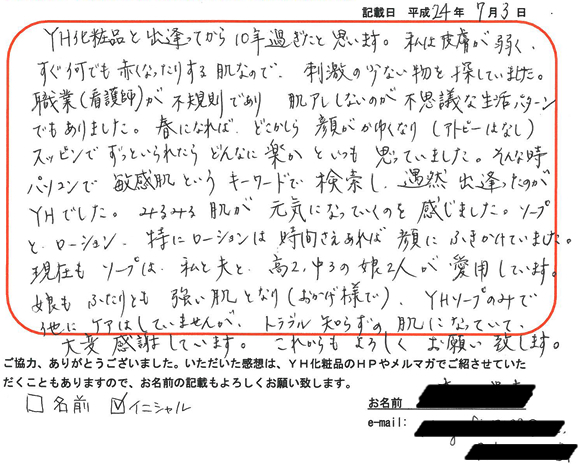 記載日 平成24年 7月3日
YH化粧品と出逢ってから10年過ぎたと思います。私は皮膚が弱く、
すぐ何でも赤くなったりする肌なので、刺激の少ない物を探していました。
職業(看護師)が不規則であり 肌アレしないのが不思議な生活パターン
でもありました。春になれば どこかしら 顔がかゆくなり (アトピーはなし)
スッピンでずっといられたらどんなに楽か といつも 思っていました。そんな時
パソコンで 敏感肌という キーワードで 検索し、遇然 出逢ったのが
YHでした。みるみる 肌が 元気になっていくのを 感じました。ソープ
と、ローション、特にローションは 時間さえあれば 顔に ふきかけていました。
現在も ソープは、私と夫と、高2、中3の娘2人が 愛用しています。
娘も ふたりとも 強い肌となり (おかげ様で)、YHソープのみで
他に ケアはしていませんが、トラブル知らずの 肌になっていて、
大変 感謝しています。これからも よろしく お願い致します。
ご協力、ありがとうございました。いただいた感想は、YH化粧品のHPやメルマガでご紹させていた
だくこともありますので、お名前の記載もよろしくお願い致します。
□ 名前 ☑ イニシャル
お名前
e-mail: